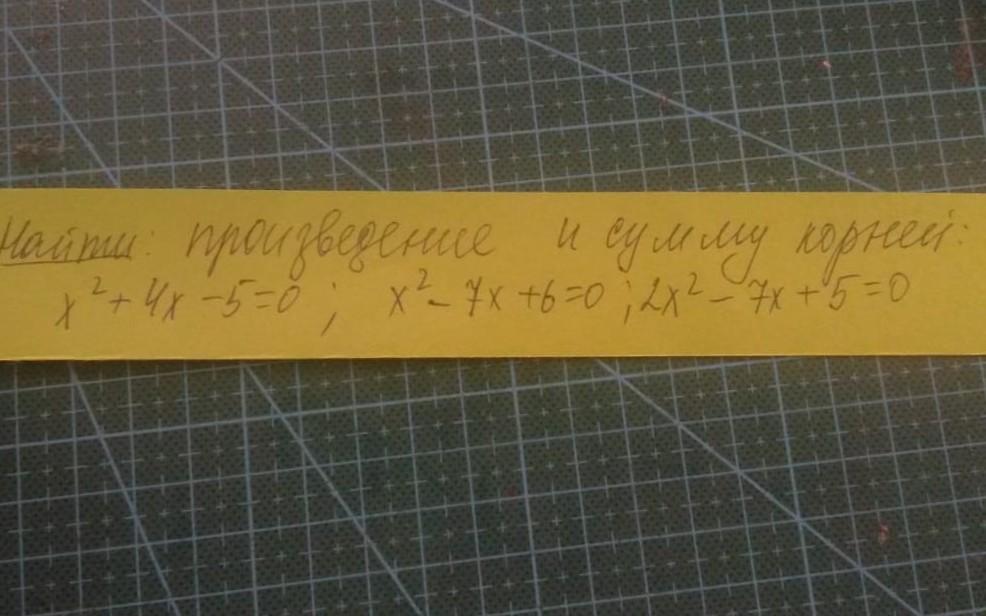 Найти: произведение и сумму корней:
x² + 4x - 5 = 0 ; x² - 7x + 6 = 0 ; 2x² - 7x + 5 = 0